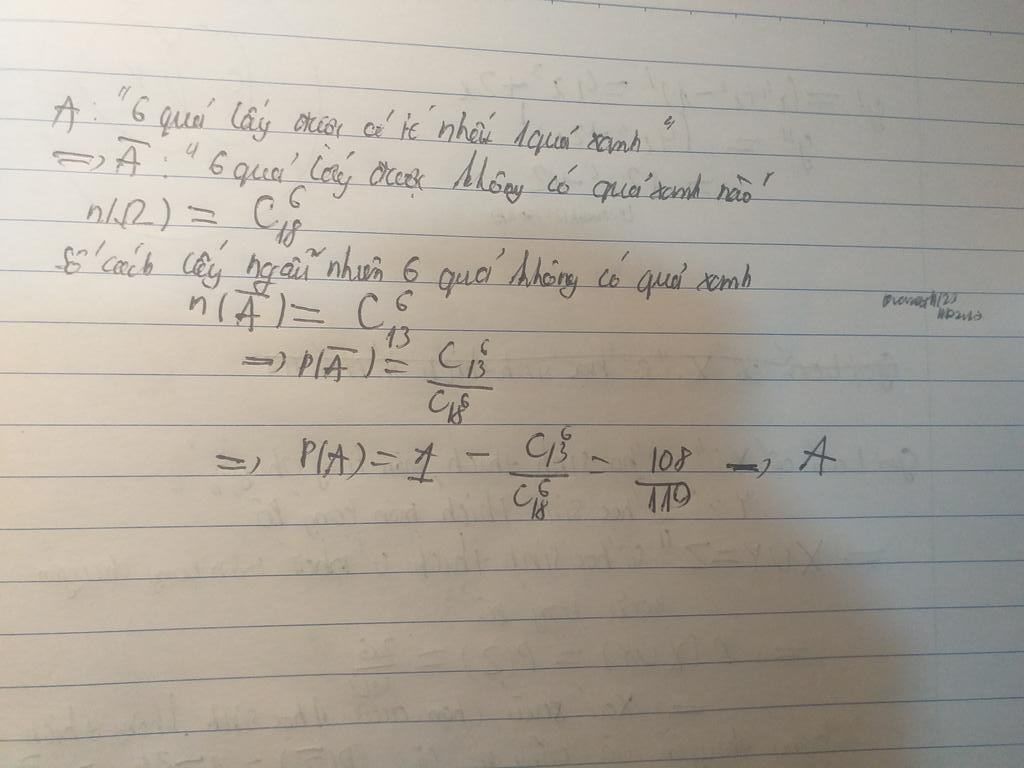 A: "6 quả lấy được có ít nhất 1 quả xanh"
=> A̅: "6 quả lấy được không có quả xanh nào"
n(Ω) = C₁₈⁶
Số cách lấy ngẫu nhiên 6 quả không có quả xanh
n(A̅) = C₁₃⁶
=> P(A̅) = C₁₃⁶ / C₁₈⁶
=> P(A) = 1 - C₁₃⁶ / C₁₈⁶ = 108/119 => A